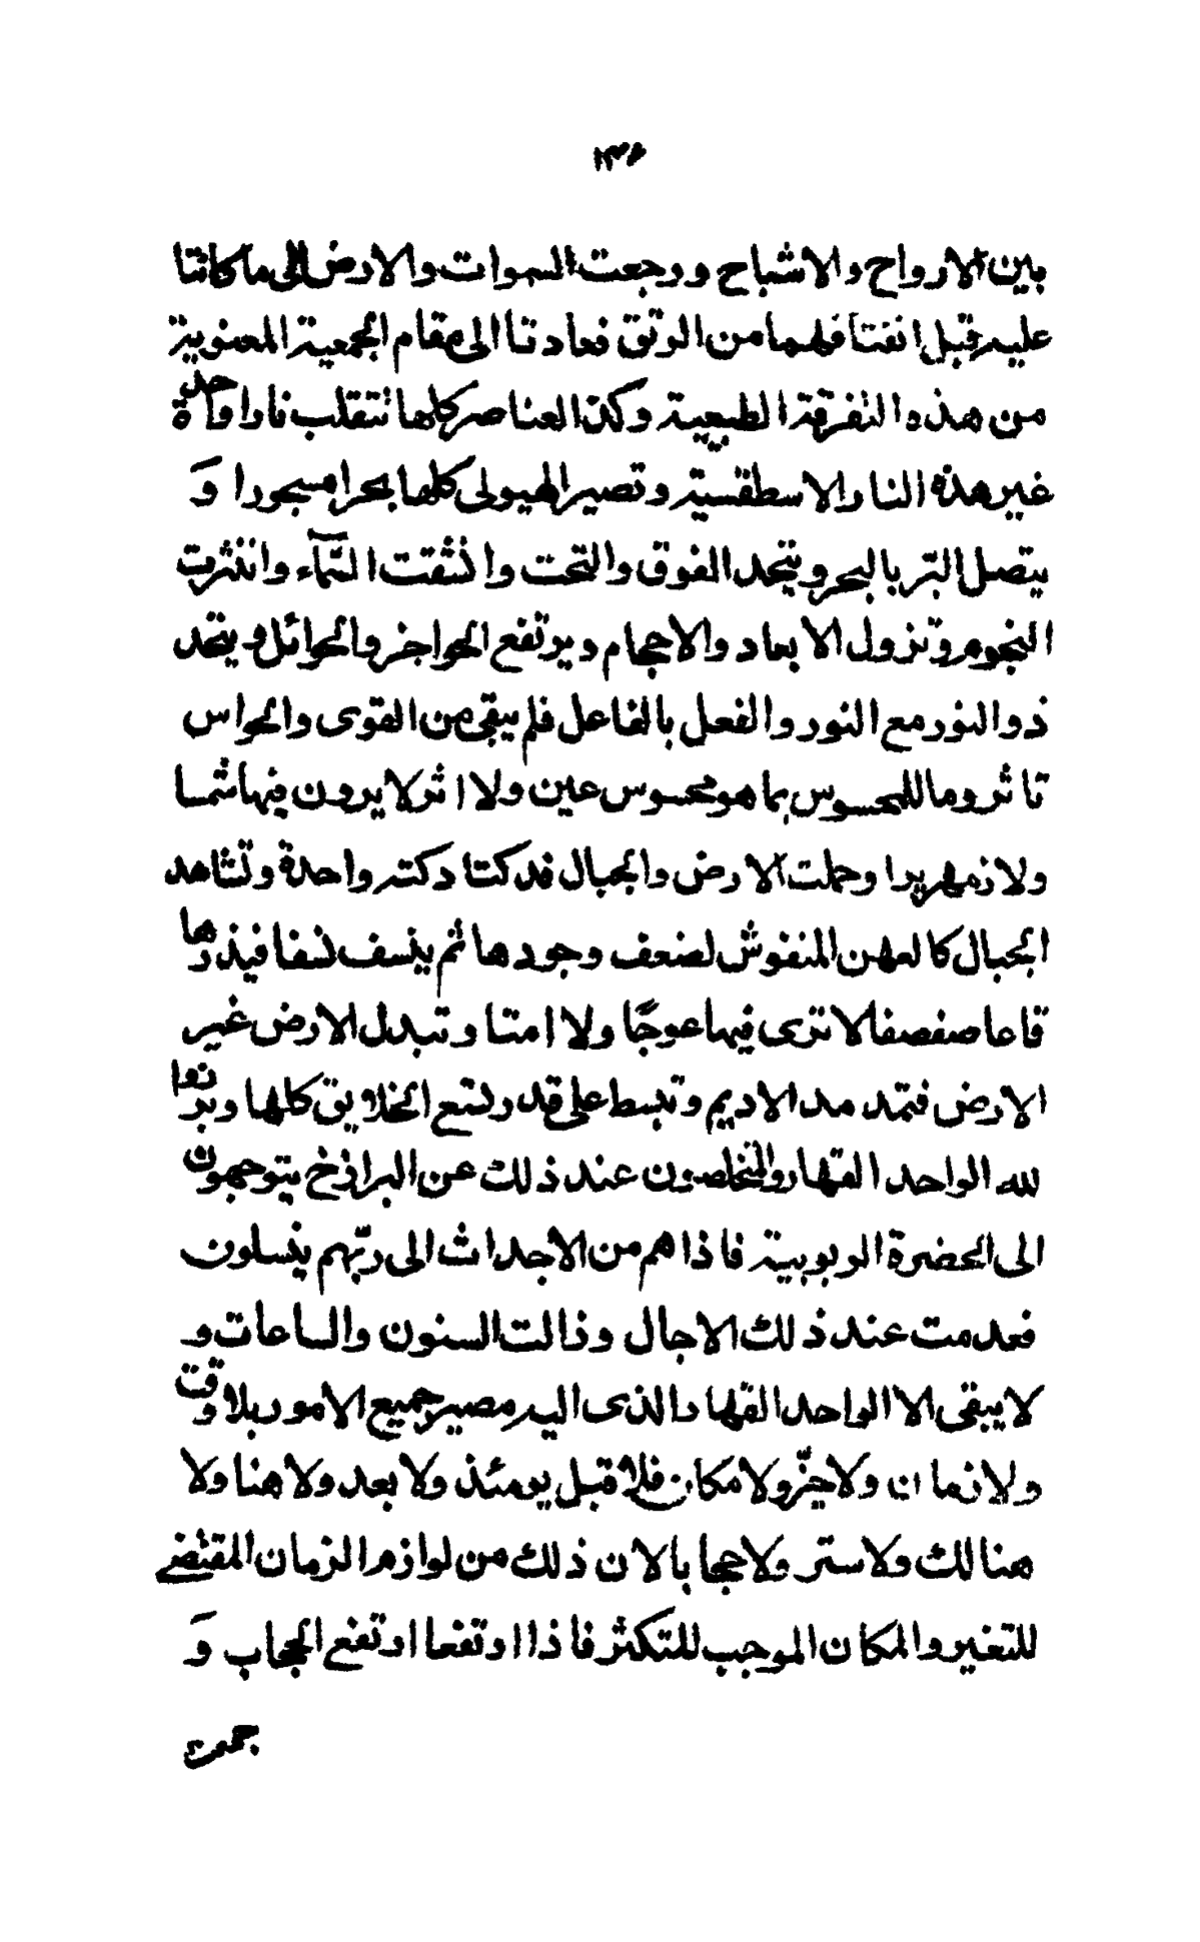 ١٣٦
بين الارواح والاشباح ورجعت السموات والارض الى ما كانتا
عليه قبل انفتاقهما من الرتق فعادتا الى مقام الجمعية المعنوية
من هذه التفرقة الطبيعية وكذا العناصر كلها تنقلب نارا واحدة
غير هذه النار الاسطقسية وتصير الهيولى كلها بحرا مسجورا وَ
يتصل البّر بالبحر ويتحد الفوق والتحت وانشقت السّمآء وانتثرت
النجوم وتزول الابعاد والاحجام ويرتفع الحواجز والحوائل ويتحد
ذو النور مع النور والفعل بالفاعل فلم يبقى من القوى والحواس
تاثر وما للمحسوس بما هو محسوس عين ولا اثر لا يرون فيها شمسا
ولا زمهريرا وحملت الارض والجبال فدكتا دكته واحدة وتشاهد
الجبال كالعهن المنفوش لضعف وجودها ثم ينسف نسفا فيذرها
قاعا صفصفا لا ترى فيها عوجًا ولا امتا وتبدل الارض غير
الارض فتمد مد الاديم وتبسط على قدر يسع الخلايق كلها وبرزوا
لله الواحد القهار والمتخلصون عند ذلك عن البرازخ يتوجهون
الى الحضرة الربوبية فاذا هم من الاجداث الى ربّهم ينسلون
فعدمت عند ذلك الاجال وزالت السنون والساعات و
لا يبقى الا الواحد القهار الذى اليه مصير جميع الامور بلا وقت
ولا زمان ولا حيّز ولا مكان فلا قبل يومئذ ولا بعد ولا هنا ولا
هنالك ولا ستر ولا حجاب الان ذلك من لوازم الزمان المقتضے
للتغير والمكان الموجب للتكثر فاذا ارتفعا ارتفع الحجاب وَ
جمعت